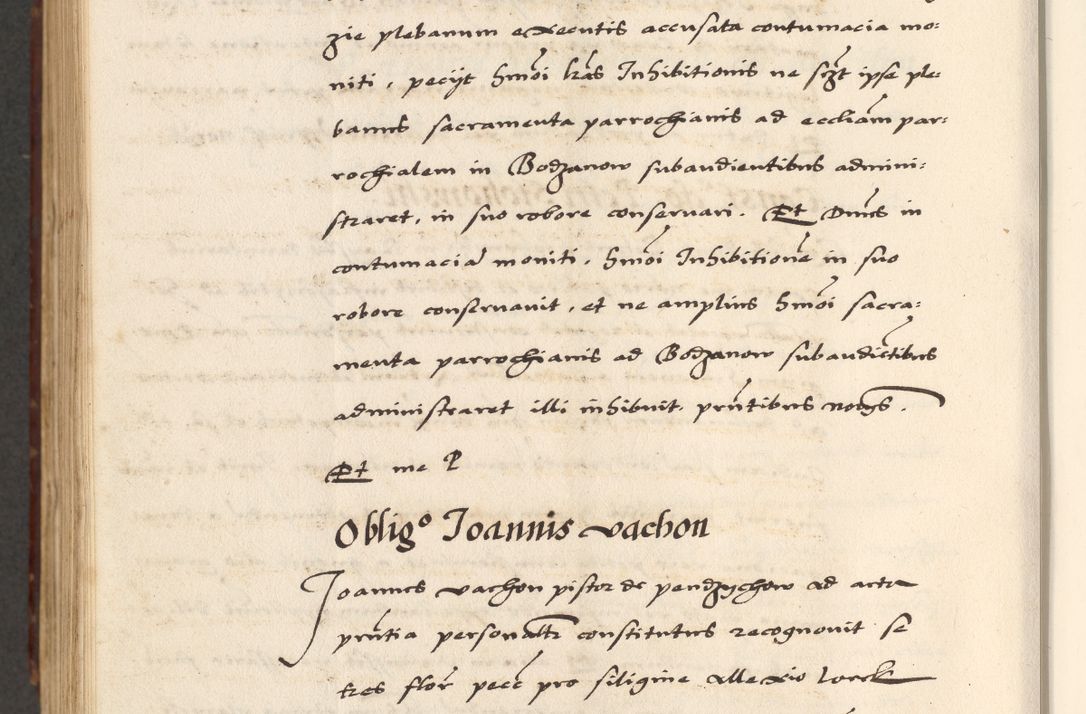 zie plebanum execentis accusata contumacia mo:
niti, pecijt hmoi lras Inhibitionis ne sczt ipse ple:
banus sacramenta parrochianis ad eccliam par:
rochialem in Bodzanow subaudientibus admini:
straret, in suo robore conservari. Et Dnus in
contumacia moniti, hmoi Inhibitione in suo
robore conservavit, et ne amplius hmoi sacra:
menta parrochianis ad Bodzanow subaudietibus
administraret illi inhibuit. prntibus
Et me P
Obligo Ioannis vachon
Joannes vachon pistor de pendzychow ad acta
prntia personaltr constitutus recognovit se
tres flor pecc pro siligine Allexio Lorek